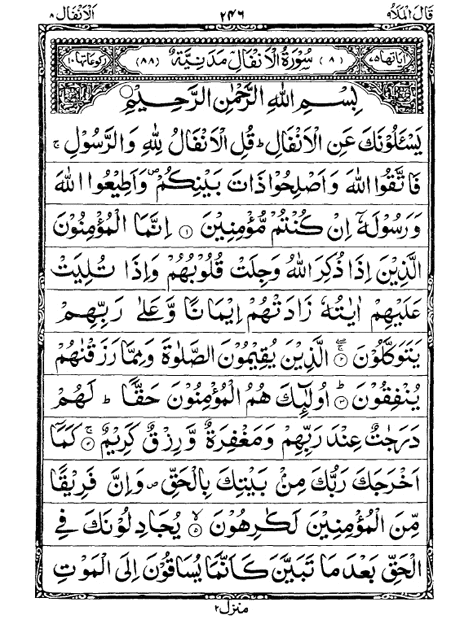 قَالَ الْمَلَاُ ٩ ٢٤٦ اَلْاَنْفَال ٨
اٰيَاتُهَا ٧٥ (٨) سُوْرَةُ الْاَنْفَالِ مَدَنِيَّةٌ (٨٨) رُكُوْعَاتُهَا ١٠
بِسْمِ اللّٰهِ الرَّحْمٰنِ الرَّحِيْمِ
يَسْـَٔلُوْنَكَ عَنِ الْاَنْفَالِ ؕ قُلِ الْاَنْفَالُ لِلّٰهِ وَالرَّسُوْلِ ۚ
فَاتَّقُوا اللّٰهَ وَاَصْلِحُوْا ذَاتَ بَيْنِكُمْ ۪ وَاَطِيْعُوا اللّٰهَ
وَرَسُوْلَهٗۤ اِنْ كُنْتُمْ مُّؤْمِنِيْنَ ۝۱ اِنَّمَا الْمُؤْمِنُوْنَ
الَّذِيْنَ اِذَا ذُكِرَ اللّٰهُ وَجِلَتْ قُلُوْبُهُمْ وَاِذَا تُلِيَتْ
عَلَيْهِمْ اٰيٰتُهٗ زَادَتْهُمْ اِيْمَانًا وَّعَلٰى رَبِّهِمْ
يَتَوَكَّلُوْنَ ۝۲ الَّذِيْنَ يُقِيْمُوْنَ الصَّلٰوةَ وَمِمَّا رَزَقْنٰهُمْ
يُنْفِقُوْنَ ۝۳ اُولٰٓئِكَ هُمُ الْمُؤْمِنُوْنَ حَقًّا ؕ لَهُمْ
دَرَجٰتٌ عِنْدَ رَبِّهِمْ وَمَغْفِرَةٌ وَّرِزْقٌ كَرِيْمٌ ۝۴ كَمَاۤ
اَخْرَجَكَ رَبُّكَ مِنْۢ بَيْتِكَ بِالْحَقِّ ۪ وَاِنَّ فَرِيْقًا
مِّنَ الْمُؤْمِنِيْنَ لَكٰرِهُوْنَ ۝۵ يُجَادِلُوْنَكَ فِي
الْحَقِّ بَعْدَ مَا تَبَيَّنَ كَاَنَّمَا يُسَاقُوْنَ اِلَى الْمَوْتِ
منزل ٢